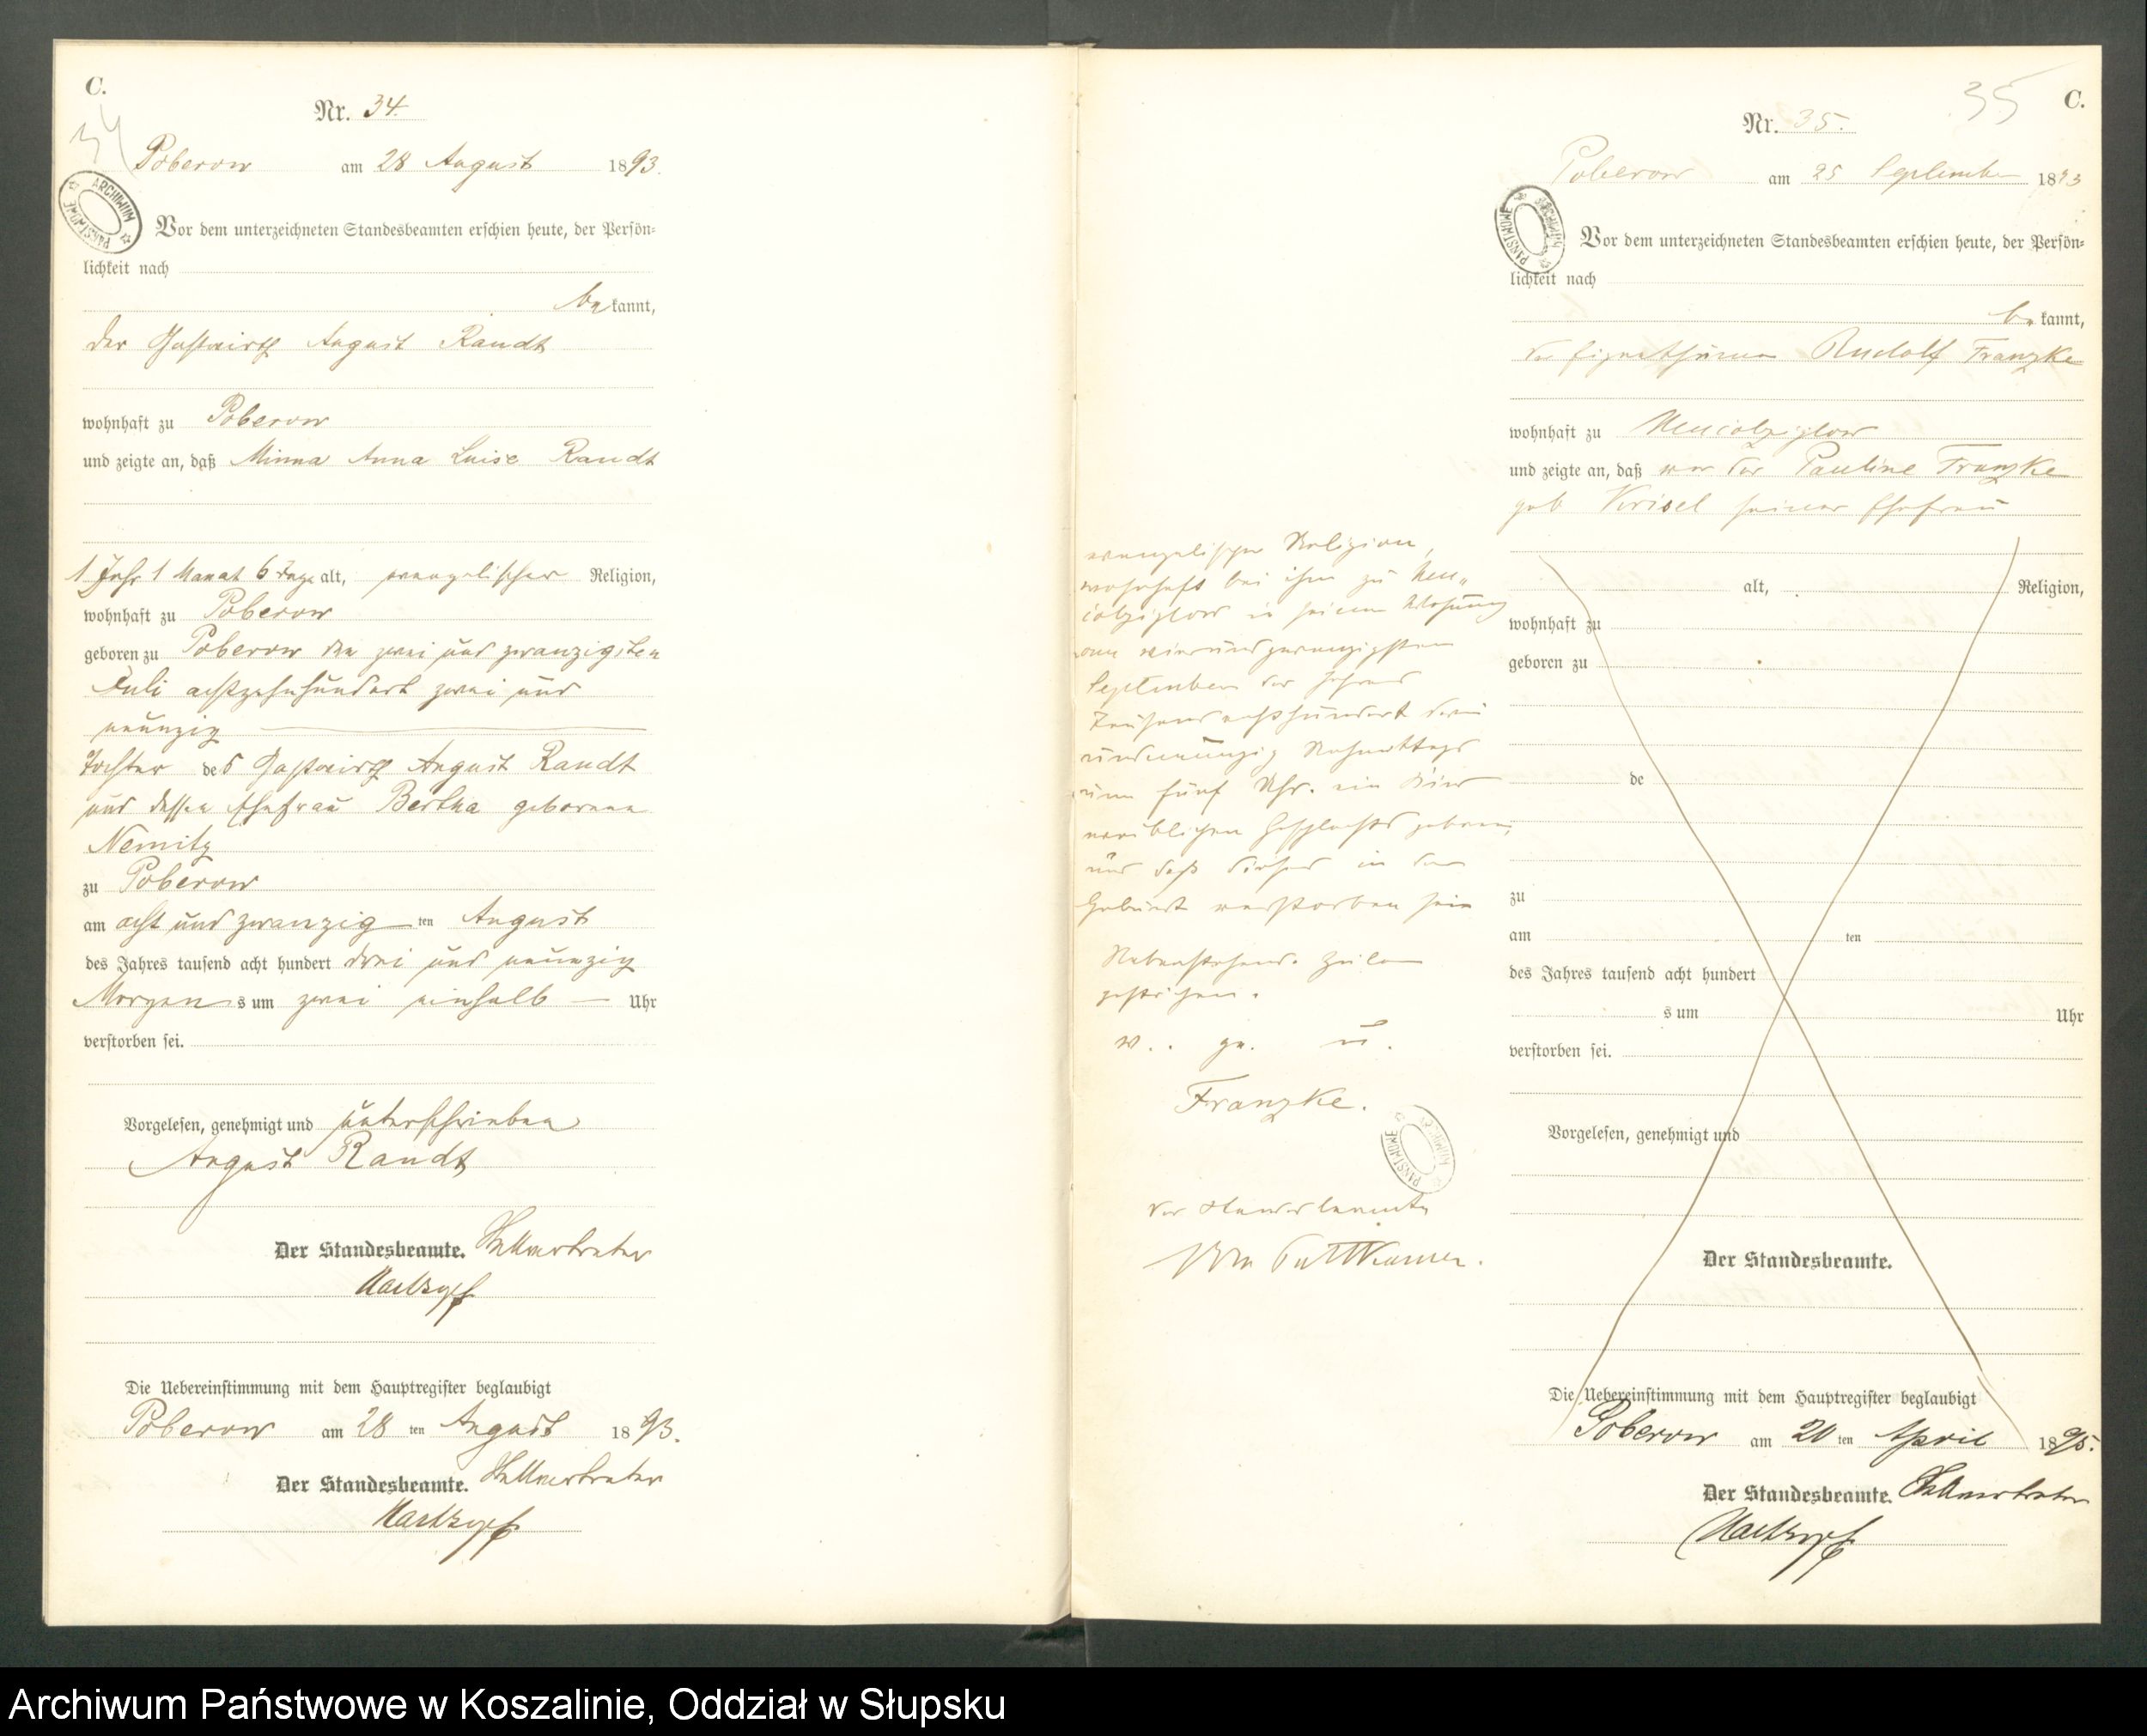 C.
34
Nr. 34.
Poberow am 28 August 1893.
ARCHIWUM PAŃSTWOWE
Vor dem unterzeichneten Standesbeamten erschien heute, der Persön=
lichkeit nach
bekannt,
der Gastwirth August Randt
wohnhaft zu Poberow
und zeigte an, daß Minna Anna Luise Randt
1 Jahr 1 Monat 6 Tage alt, evangelischer Religion,
wohnhaft zu Poberow
geboren zu Poberow den zwei und zwanzigsten
Juli achtzehnhundert zwei und
neunzig
Tochter des Gastwirth August Randt
und dessen Ehefrau Bertha geborene
Nemitz
zu Poberow
am acht und zwanzigten August
des Jahres tausend acht hundert drei und neunzig
Morgens um zwei einhalb Uhr
verstorben sei.
Vorgelesen, genehmigt und unterschrieben
August Randt
Der Standesbeamte. Stellvertreter
Die Uebereinstimmung mit dem Hauptregister beglaubigt
Poberow am 28 ten August 1893.
Der Standesbeamte. Stellvertreter
35
C.
Nr. 35.
Poberow am 25 September 1893
ARCHIWUM PAŃSTWOWE
Vor dem unterzeichneten Standesbeamten erschien heute, der Persön=
lichkeit nach
bekannt,
der Eigenthümer Rudolf Franzke
wohnhaft zu
und zeigte an, daß von der Pauline Franzke
geb Krisel seiner Ehefrau
evangelischer Religion,
wohnhaft bei ihm zu Neu„
in seiner Wohnung
am vierundzwanzigsten
September des Jahres
Tausend achthundert drei
undneunzig Nachmittags
um fünf Uhr. ein Kind
weiblichen Geschlechts geboren,
und daß dieses in der
Geburt verstorben sei
Nebenstehende Zeilen
gestrichen.
v.. g. u.
Franzke.
ARCHIWUM PAŃSTWOWE
Der Standesbeamte
von Puttkamer.
alt, Religion,
wohnhaft zu
geboren zu
de
zu
am ten
des Jahres tausend acht hundert
s um Uhr
verstorben sei.
Vorgelesen, genehmigt und
Der Standesbeamte.
Die Uebereinstimmung mit dem Hauptregister beglaubigt
Poberow am 20 ten April 1895.
Der Standesbeamte. Stellvertreter
Archiwum Państwowe w Koszalinie, Oddział w Słupsku